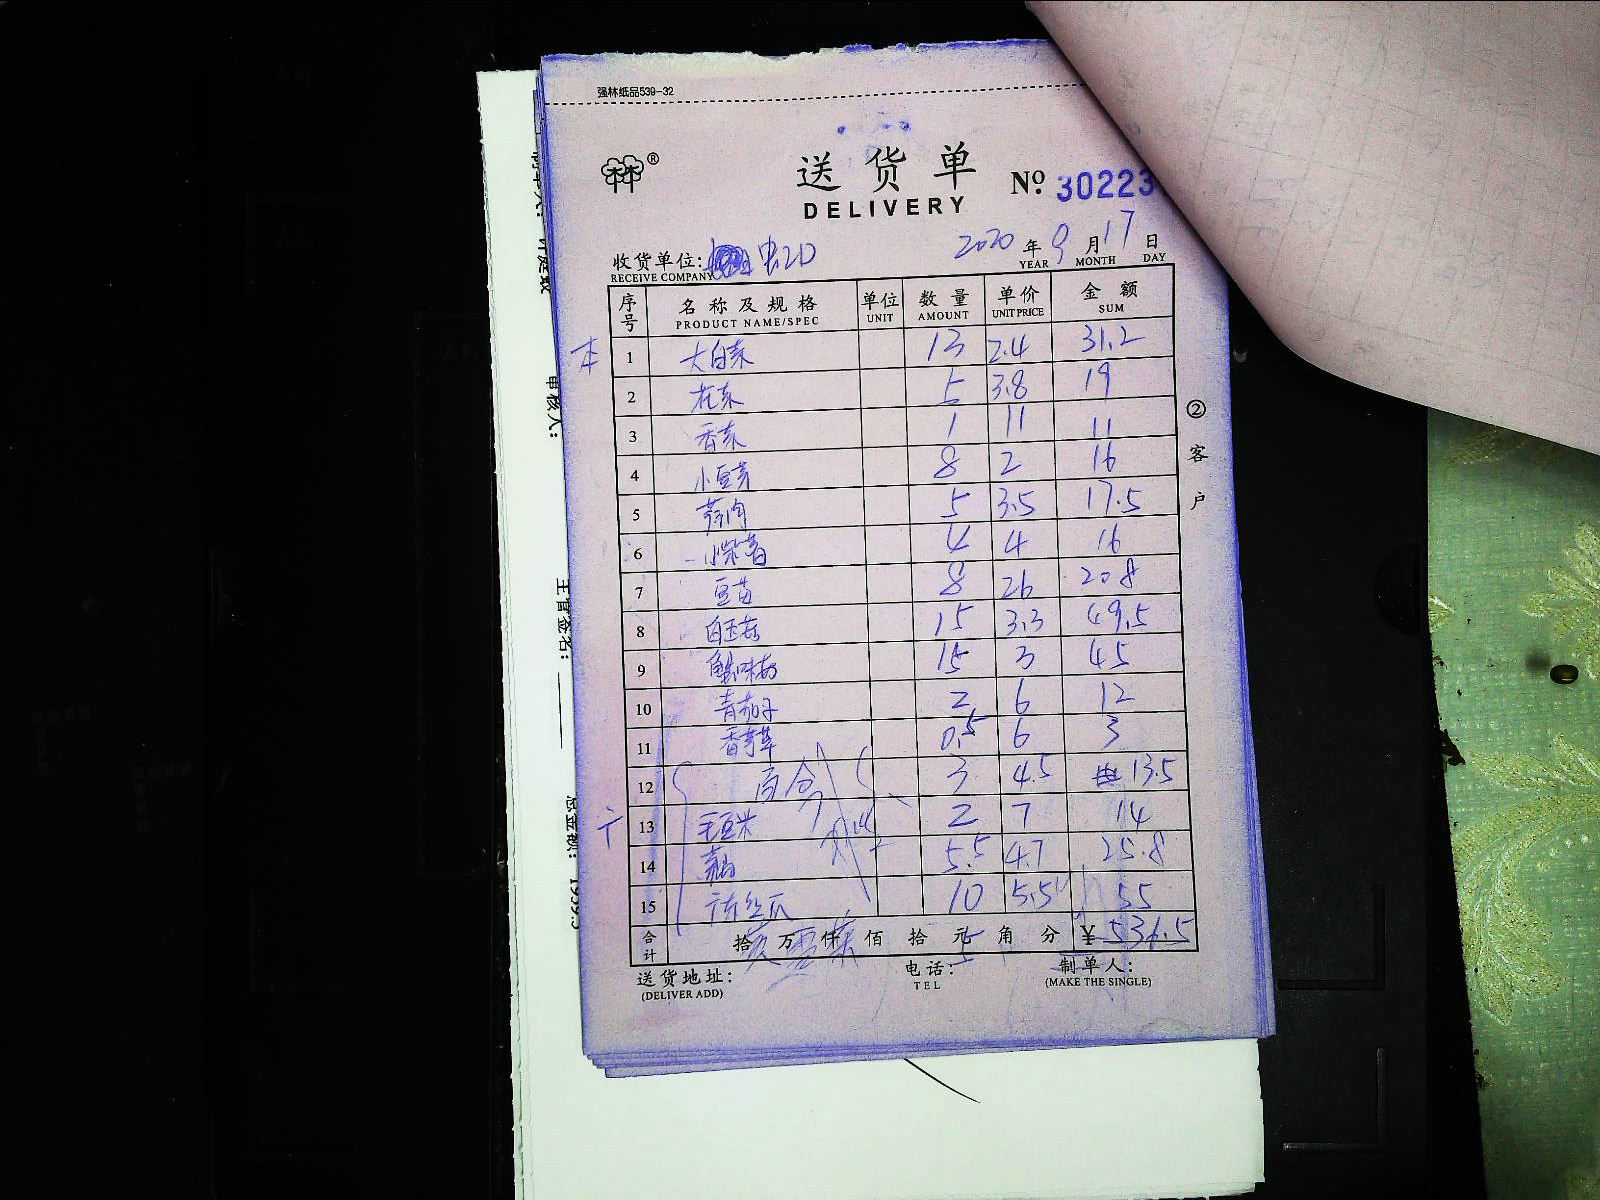 强林纸品539-32
®
送货单
DELIVERY
No. 30223
收货单位:
RECEIVE COMPANY
2020 年 9 月 17 日
YEAR MONTH DAY
序号 名称及规格 单位 数量 单价 金额
PRODUCT NAME/SPEC UNIT AMOUNT UNIT PRICE SUM
本 1 大白菜 13 2.4 31.2
2 花菜 5 3.8 19
3 香菜 1 11 11
4 小豆芽 8 2 16
5 5 3.5 17.5
6 小紫薯 4 4 16
7 豆苗 8 26 208
8 白玉菇 15 3.3 49.5
9 蟹味菇 15 3 45
10 青茄子 2 6 12
11 香芹 0.5 6 3
12 百合 3 4.5 13.5
13 毛豆米 2 7 14
14 5.5 4.7 25.8
15 丝瓜 10 5.5 55
合计 拾 万 仟 佰 拾 元 角 分 ¥ 536.5
送货地址: 电话: 制单人:
(DELIVER ADD) TEL (MAKE THE SINGLE)
② 客户
审核人:
主管签名:
总金额: